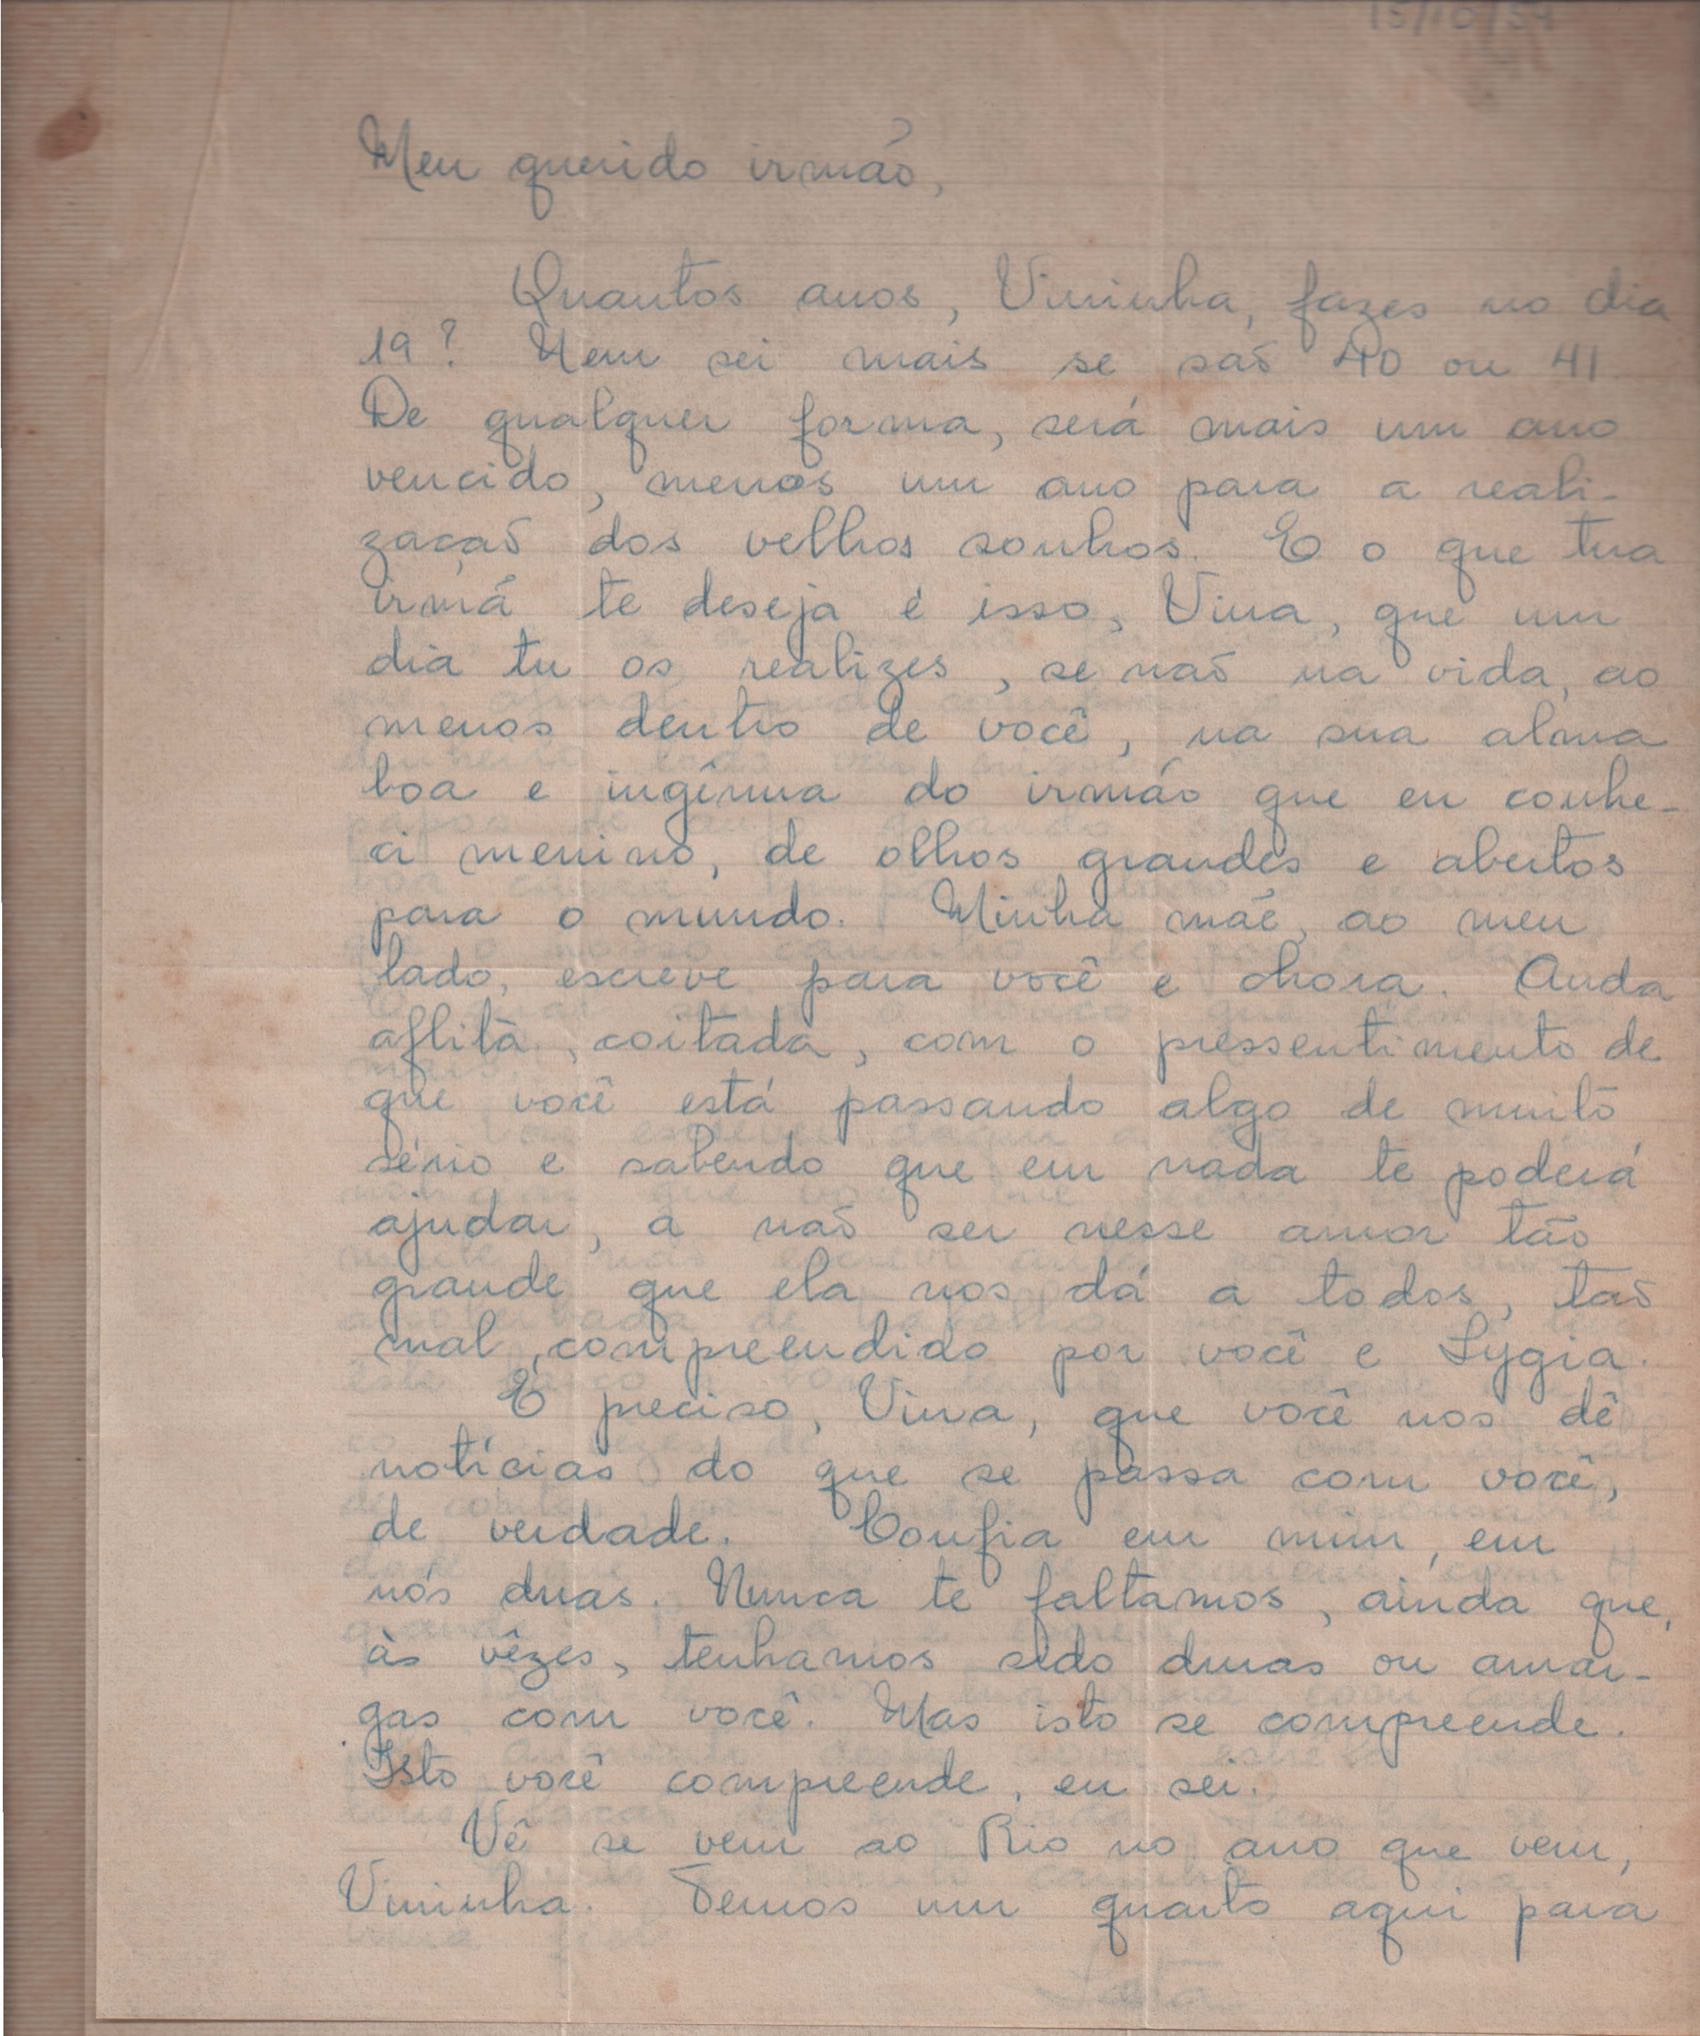 15/10/54
Meu querido irmão,
Quantos anos, Vininha, fazes no dia
19? Nem sei mais se são 40 ou 41
De qualquer forma, será mais um ano
vencido, menos um ano para a reali-
zação dos velhos sonhos. E o que tua
irmã te deseja é isso, Vina, que um
dia tu os realizes, se não na vida, ao
menos dentro de você, na sua alma
boa e ingênua do irmão que eu conhe-
ci menino, de olhos grandes e abertos
para o mundo. Minha mãe, ao meu
lado, escreve para você e chora. Anda
aflita, coitada, com o pressentimento de
que você está passando algo de muito
sério e sabendo que em nada te poderá
ajudar, a não ser nesse amor tão
grande que ela nos dá a todos, tão
mal compreendido por você e Lygia.
É preciso, Vina, que você nos dê
notícias do que se passa com você,
de verdade. Confia em mim, em
nós duas. Nunca te faltamos, ainda que,
às vêzes, tenhamos sido duras ou amar-
gas com você. Mas isto se compreende.
Isto você compreende, eu sei.
Vê se vem ao Rio no ano que vem,
Vininha. Temos um quarto aqui para